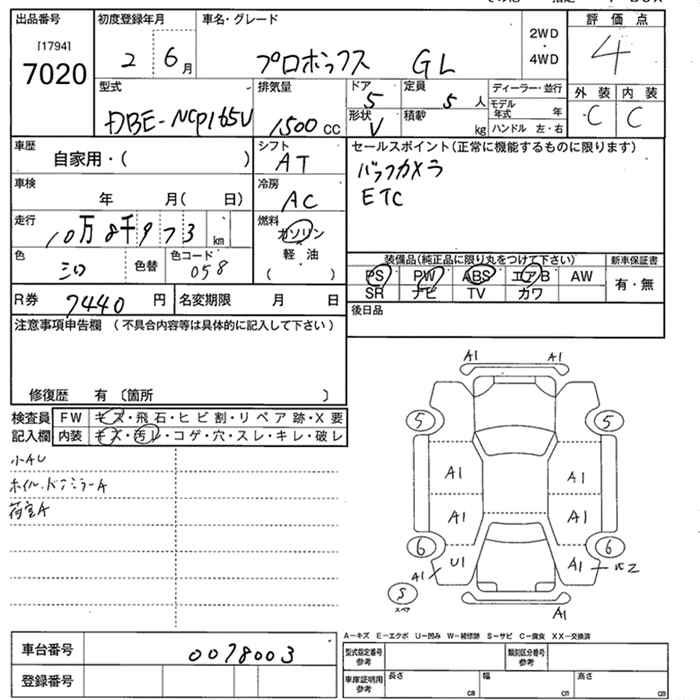 出品番号 初度登録年月 車名・グレード 2WD ・ 4WD 評価点
[1794] 7020 2 6月 プロボックス GL 4
型式 排気量 ドア 定員 ディーラー・並行 外装 内装
DBE-NCP165V 1500cc 5 5人 モデル年式 年 C C
形状 V 積載 kg ハンドル 左・右
車歴 シフト セールスポイント(正常に機能するものに限ります)
自家用・( ) AT バックカメラ
車検 冷房 ETC
年 月( 日) AC
走行 燃料
10万8千973km ガソリン
軽油
( )
色 色替 色コード 装備品(純正品に限り丸をつけて下さい) 新車保証書
シロ 058 PS PW ABS エアB AW 有・無
SR ナビ TV カワ
R券 7440円 名変期限 月 日 後日品
注意事項申告欄(不具合内容等は具体的に記入して下さい)
修復歴 有〔箇所 〕
検査員 FW キズ・飛石・ヒビ割・リペア跡・X要
記入欄 内装 キズ・汚レ・コゲ・穴・スレ・キレ・破レ
小AU
ホイル・ドアミラーA
荷室A
A1 A1
5 5
A1 A1
A1 A1
6 6
U1 A1
A1
S スペア
A1
A-キズ E-エクボ U-凹み W-補修跡 S-サビ C-腐食 XX-交換済
車台番号 0078003 型式指定番号 参考 類別区分番号 参考
登録番号 車庫証明用 参考 長さ cm 幅 cm 高さ cm